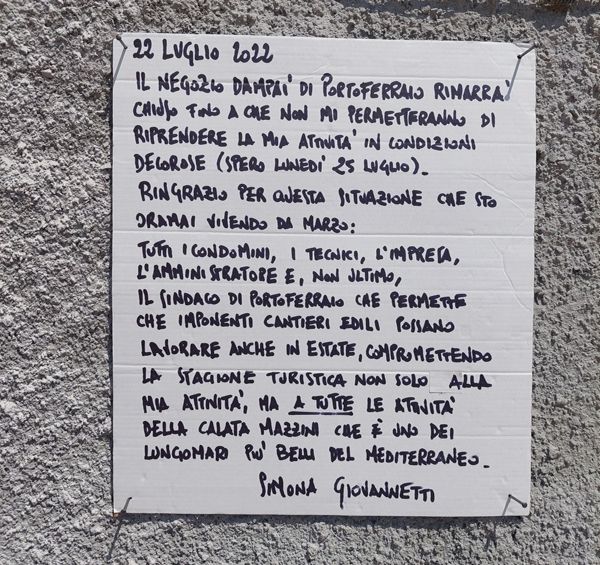 22 LUGLIO 2022
IL NEGOZIO DAMPAI' DI PORTOFERRAIO RIMARRA'
CHIUSO FINO A CHE NON MI PERMETTERANNO DI
RIPRENDERE LA MIA ATTIVITA' IN CONDIZIONI
DECOROSE (SPERO LUNEDI' 25 LUGLIO).
RINGRAZIO PER QUESTA SITUAZIONE CHE STO
ORAMAI VIVENDO DA MARZO:
TUTTI I CONDOMINI, I TECNICI, L'IMPRESA,
L'AMMINISTRATORE E, NON ULTIMO,
IL SINDACO DI PORTOFERRAIO CHE PERMETTE
CHE IMPONENTI CANTIERI EDILI POSSANO
LAVORARE ANCHE IN ESTATE, COMPROMETTENDO
LA STAGIONE TURISTICA NON SOLO ALLA
MIA ATTIVITA', MA A TUTTE LE ATTIVITA'
DELLA CALATA MAZZINI CHE È UNO DEI
LUNGOMARI PIU' BELLI DEL MEDITERRANEO.
SIMONA GIOVANNETTI